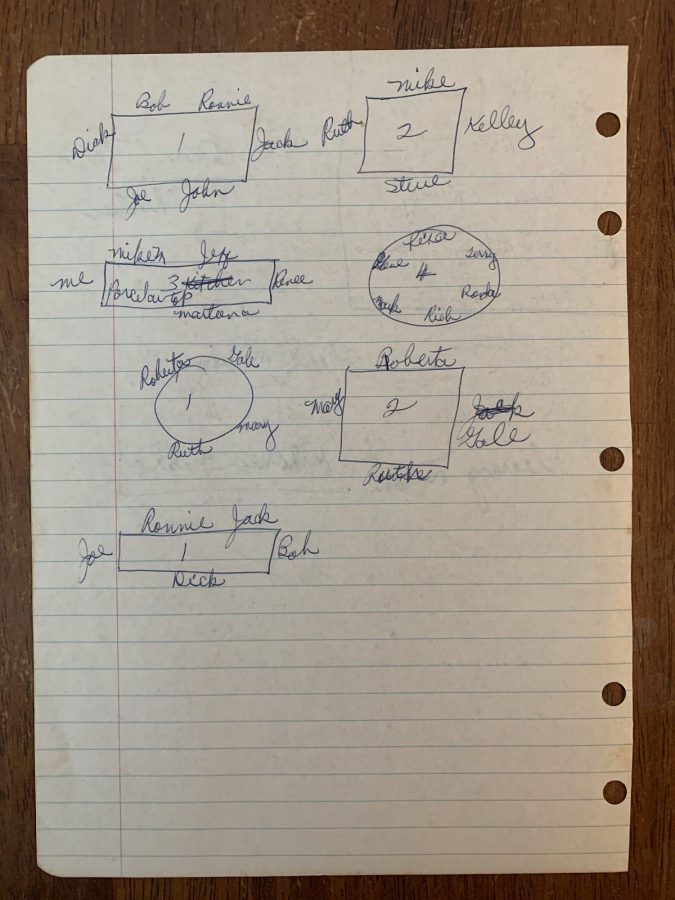 Bob Ronnie
Dick 1 Jack
Joe John
Mike
Ruth 2 Kelley
Steve
Mike's Jeff
me 3 Kitchen Renee
Porcelain top
martana
Gene Terry
4
Jack Ronda
Rich
Roberta Gale
1
Mary
Ruth
Roberta
Mary 2 Jack
Gale
Ruthie
Ronnie Jack
Joe 1 Bob
Dick